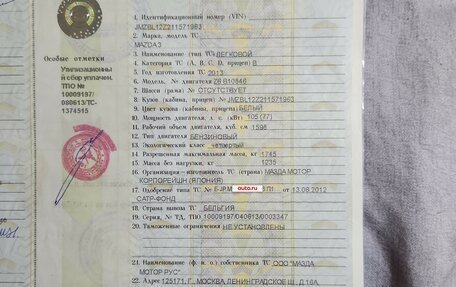 1. Идентификационный номер (VIN)
JMZBL12Z211571963
2. Марка, модель ТС
MAZDA3
3. Наименование (тип ТС) ЛЕГКОВОЙ
4. Категория ТС (А, В, С, D, прицеп) В
5. Год изготовления ТС 2013
6. Модель, № двигателя Z6 B10846
7. Шасси (рама) № ОТСУТСТВУЕТ
8. Кузов (кабина, прицеп) № JMZBL12Z211571963
9. Цвет кузова (кабины, прицепа) БЕЛЫЙ
10. Мощность двигателя, л. с. (кВт) 105 (77)
11. Рабочий объем двигателя, куб. см 1598
12. Тип двигателя БЕНЗИНОВЫЙ
13. Экологический класс четвертый
14. Разрешенная максимальная масса, кг 1745
15. Масса без нагрузки, кг 1235
16. Организация - изготовитель ТС (страна) МАЗДА МОТОР
КОРПОРЕЙШН (ЯПОНИЯ)
17. Одобрение типа ТС № E-JP.M auto.ru от 13.08.2012
САТР-ФОНД
18. Страна вывоза ТС БЕЛЬГИЯ
19. Серия, № ТД, ТПО 10009197/040613/0003347
20. Таможенные ограничения НЕ УСТАНОВЛЕНЫ
21. Наименование (ф. и. о.) собственника ТС ООО "МАЗДА
МОТОР РУС"
22. Адрес 125171, Г. МОСКВА, ЛЕНИНГРАДСКОЕ Ш., Д.16А,
Особые отметки
Утилизационны
й сбор уплачен.
ТПО №
10009197/
080613/ТС-
1374515